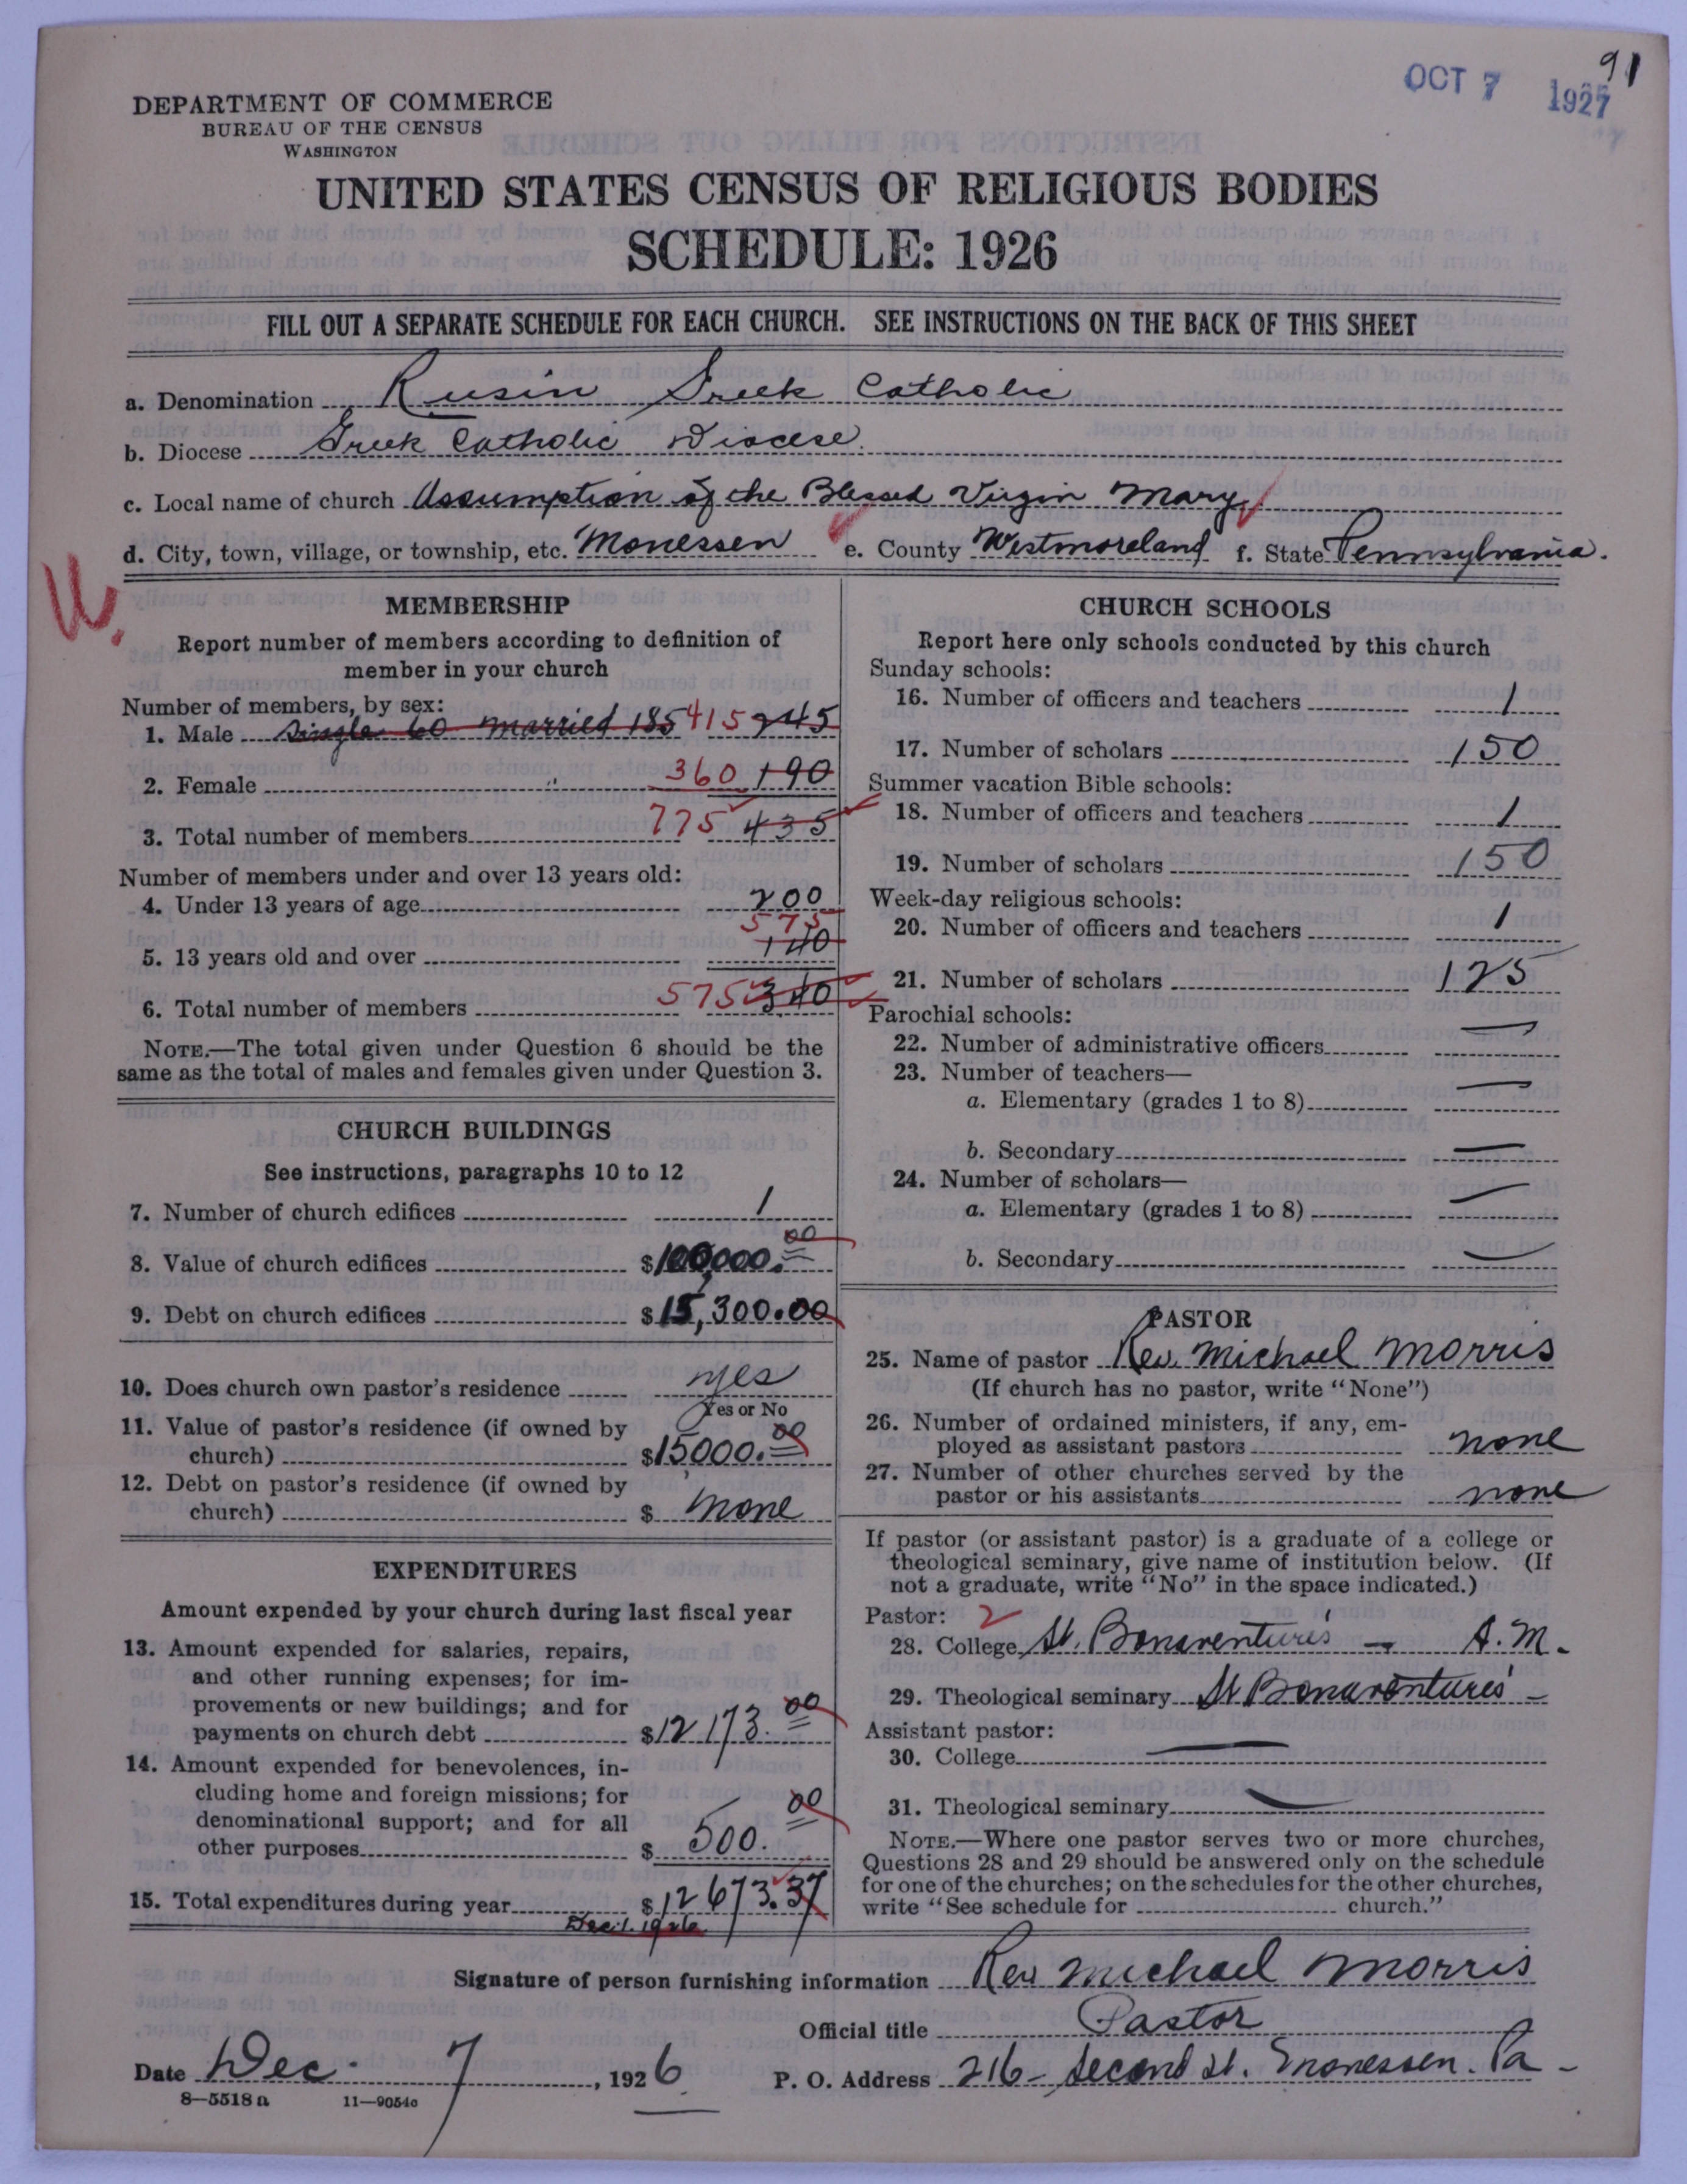 91
OCT 7 1927
DEPARTMENT OF COMMERCE
BUREAU OF THE CENSUS
WASHINGTON
UNITED STATES CENSUS OF RELIGIOUS BODIES
SCHEDULE: 1926
FILL OUT A SEPARATE SCHEDULE FOR EACH CHURCH. SEE INSTRUCTIONS ON THE BACK OF THIS SHEET
a. Denomination Rusin Greek Catholic
b. Diocese Greek Catholic Diocese.
c. Local name of church Assumption of the Blessed Virgin Mary
d. City, town, village, or township, etc. Monessen e. County Westmoreland f. State Pennsylvania.
MEMBERSHIP
Report number of members according to definition of
member in your church
Number of members, by sex:
1. Male Single 60 married 185 415 245
2. Female " 360 190
3. Total number of members 775 435
Number of members under and over 13 years old:
4. Under 13 years of age 200
575
5. 13 years old and over 140
6. Total number of members 575 340
NOTE.—The total given under Question 6 should be the
same as the total of males and females given under Question 3.
CHURCH BUILDINGS
See instructions, paragraphs 10 to 12
7. Number of church edifices 1
8. Value of church edifices $100,000.00
9. Debt on church edifices $15,300.00
10. Does church own pastor's residence yes
Yes or No
11. Value of pastor's residence (if owned by
church) $15000.00
12. Debt on pastor's residence (if owned by
church) $ none
EXPENDITURES
Amount expended by your church during last fiscal year
13. Amount expended for salaries, repairs,
and other running expenses; for im-
provements or new buildings; and for
payments on church debt $12173.00
14. Amount expended for benevolences, in-
cluding home and foreign missions; for
denominational support; and for all
other purposes $500.00
15. Total expenditures during year $12673.37
Dec. 1. 1926
CHURCH SCHOOLS
Report here only schools conducted by this church
Sunday schools:
16. Number of officers and teachers 1
17. Number of scholars 150
Summer vacation Bible schools:
18. Number of officers and teachers 1
19. Number of scholars 150
Week-day religious schools:
20. Number of officers and teachers 1
21. Number of scholars 125
Parochial schools:
22. Number of administrative officers —
23. Number of teachers—
a. Elementary (grades 1 to 8) —
b. Secondary —
24. Number of scholars—
a. Elementary (grades 1 to 8) —
b. Secondary —
PASTOR
25. Name of pastor Rev. Michael Morris
(If church has no pastor, write "None")
26. Number of ordained ministers, if any, em-
ployed as assistant pastors none
27. Number of other churches served by the
pastor or his assistants none
If pastor (or assistant pastor) is a graduate of a college or
theological seminary, give name of institution below. (If
not a graduate, write "No" in the space indicated.)
Pastor: 2
28. College St. Bonaventure's — A.M.
29. Theological seminary St Bonaventure's —
Assistant pastor:
30. College —
31. Theological seminary —
NOTE.—Where one pastor serves two or more churches,
Questions 28 and 29 should be answered only on the schedule
for one of the churches; on the schedules for the other churches,
write "See schedule for church."
Signature of person furnishing information Rev Michael Morris
Official title Pastor
Date Dec. 7, 1926 P. O. Address 216 - Second St. Monessen. Pa -
8—5518 a 11—9054c